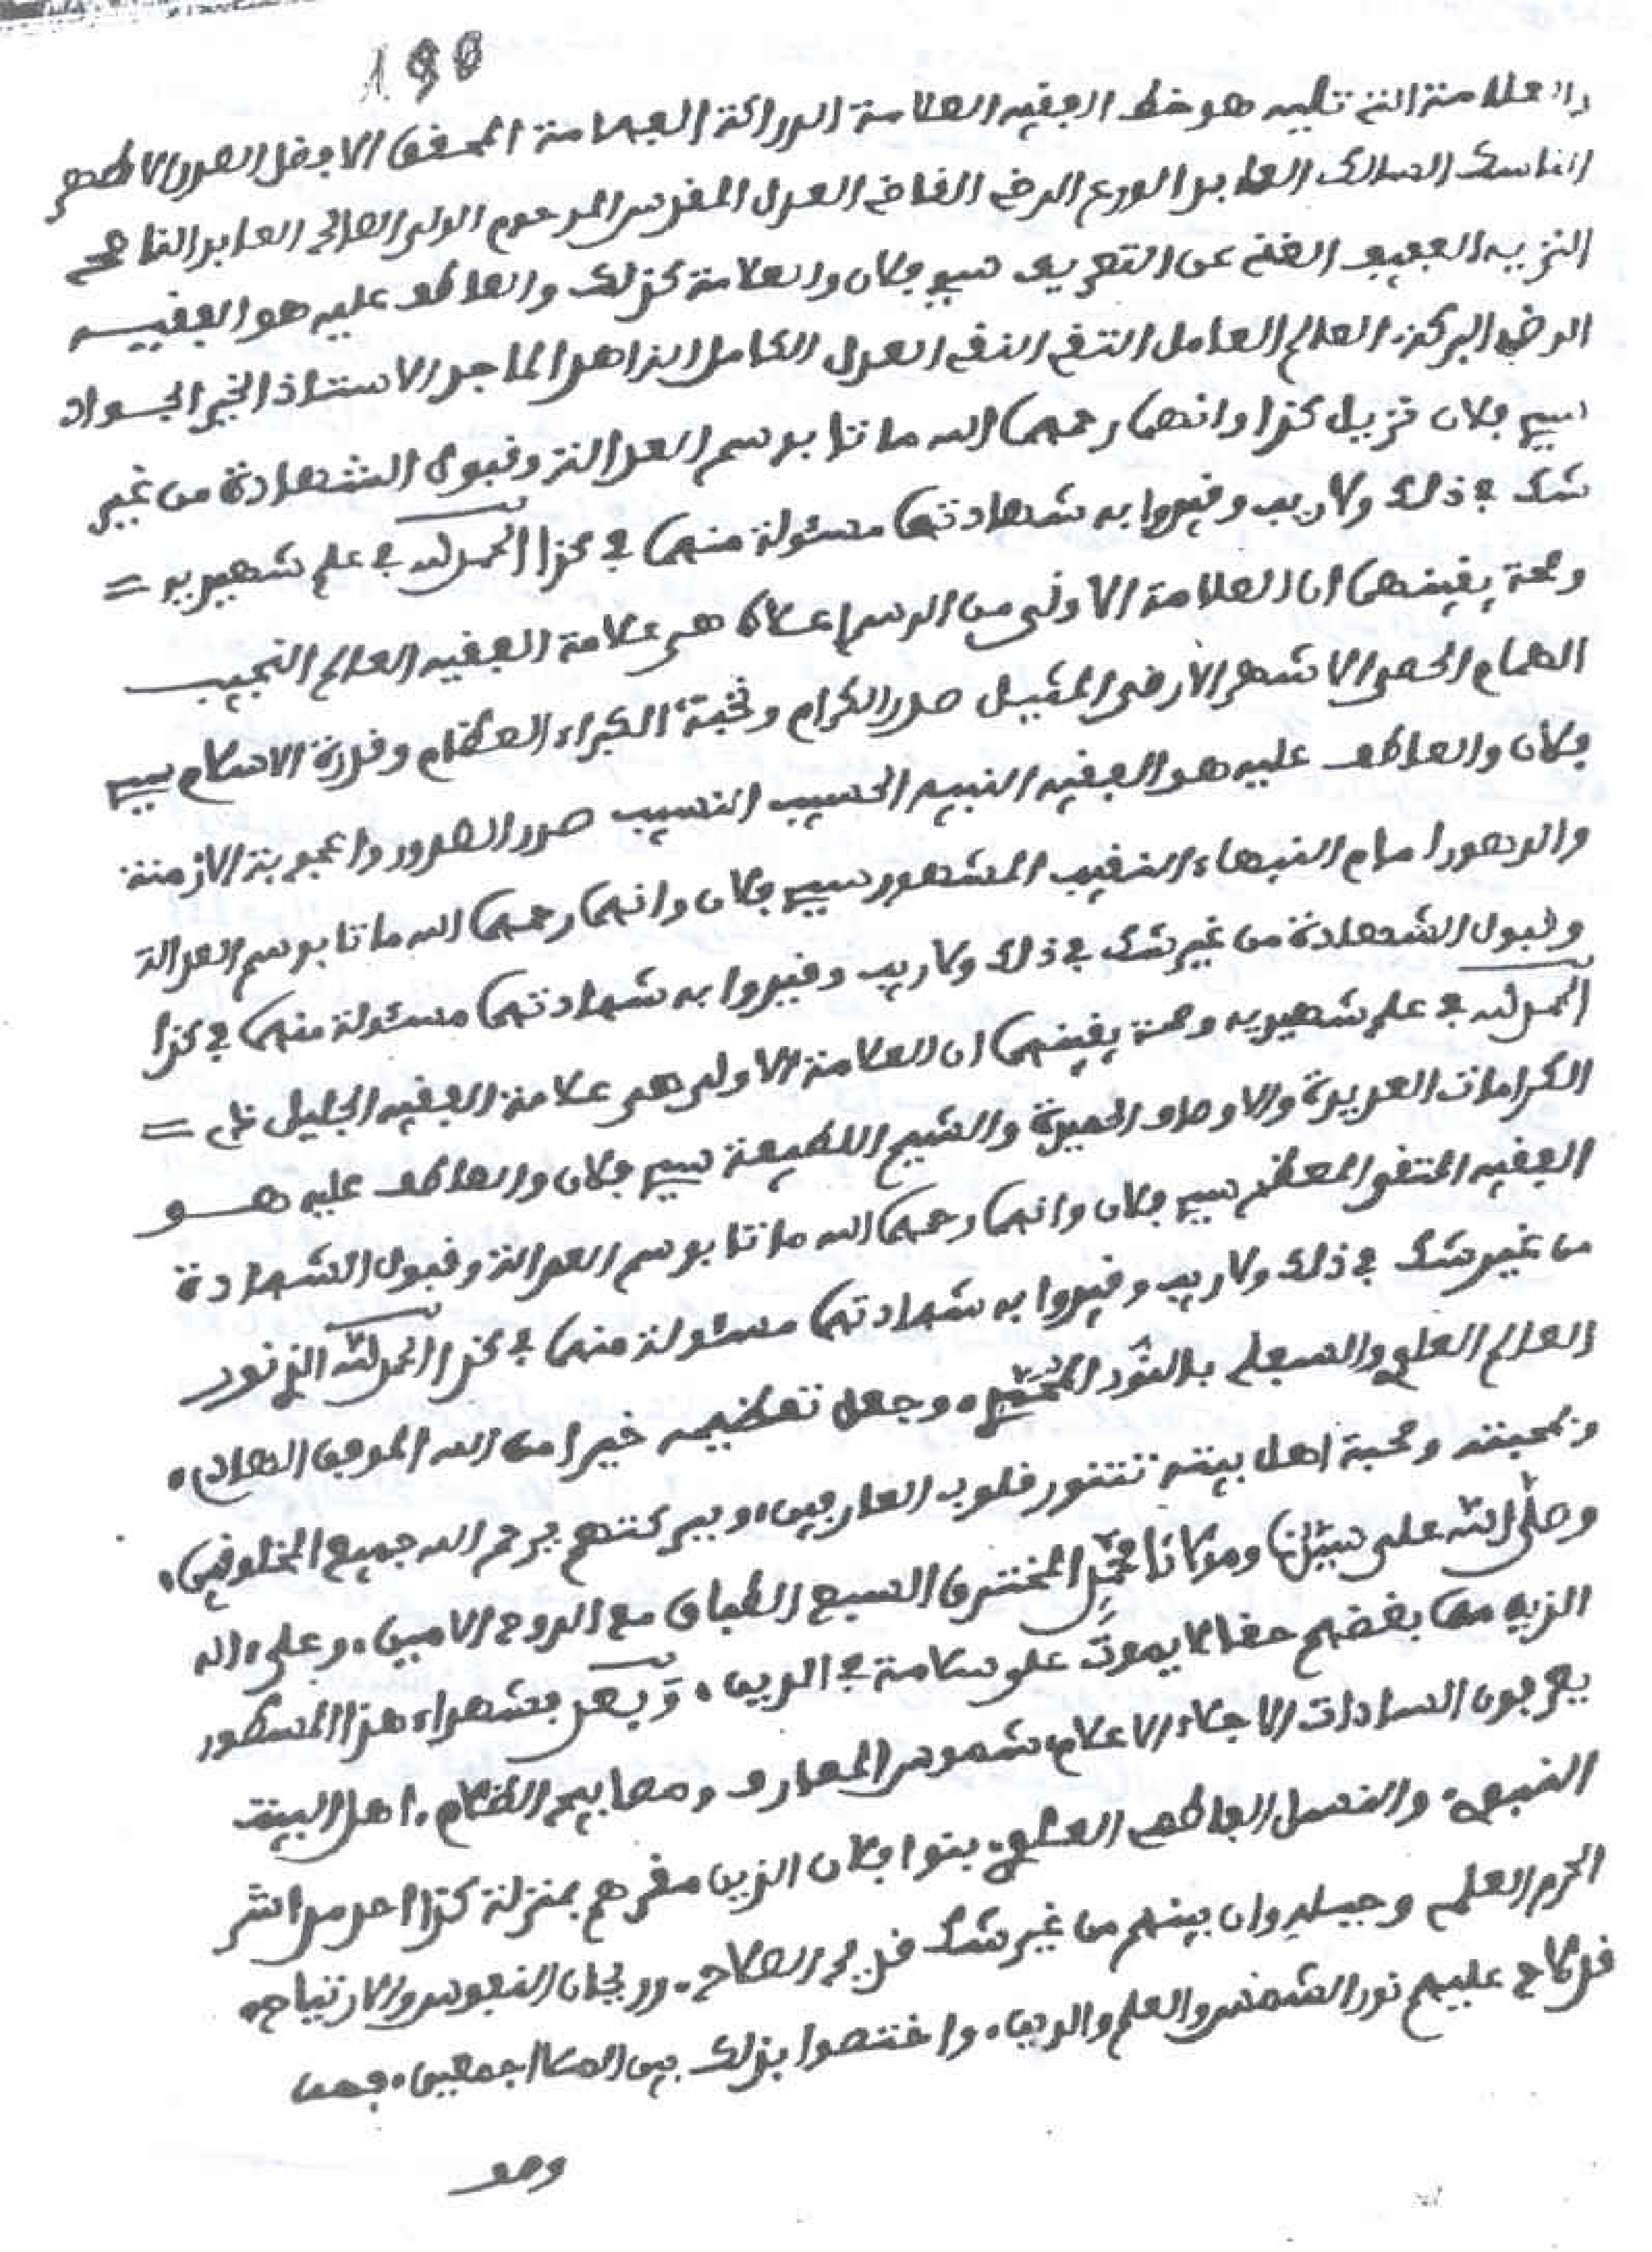 190
والعلامة التي تليه هو خط الفقيه العلامة الدراكة الفهامة المحقق الاحفل الصدر الاطهر
الناسك السالك العابد الورع الرضي القاضي العدل المقدس المرحوم الولي الصالح العابد الناصح
النزيه العفيف الغني عن التعريف سيدي فلان والعلامة كذلك والعاطف عليه هو الفقيه
الرضي البركة العالم العامل التقي النقي العدل الكامل الزاهد الماجد الاستاذ الخير الجواد
سيدي فلان نزيل كذا وانهما رحمهما الله ماتا بوسم العدالة وقبول الشهادة من غير
شك في ذلك ولا ريب وقيدوا به شهادتهما مسئولة منهما في كذا الحمد لله في علم شهيديه =
وصحة يقينهما ان العلامة الاولى من الرسم اعلاه هي علامة الفقيه العالم النجيب
الهمام الاشهر الارضى المثيل صدر الكرام ونخبة الكبراء العظام وقدوة الاسلام سيدي
فلان والعاطف عليه هو الفقيه النبيه الحسيب النسيب صدر الصدور واعجوبة الازمنة
والدهور امام النبهاء النقيب المشهور سيدي فلان وانهما رحمهما الله ماتا بوسم العدالة
وقبول الشهادة من غير شك في ذلك ولا ريب وقيدوا به شهادتهما مسئولة منهما في كذا
الحمد لله في علم شهيديه وصحة يقينهما ان العلامة الاولى هي علامة الفقيه الجليل =
الكرامات العديدة والاوصاف الحميدة والشيم اللطيفة سيدي فلان والعاطف عليه هو
الفقيه المتقن المعظم سيدي فلان وانهما رحمهما الله ماتا بوسم العدالة وقبول الشهادة
من غير شك في ذلك ولا ريب وقيدوا به شهادتهما مسئولة منهما في كذا الحمد لله الذي نور
العالم العلوي والسفلي بالنور المحمدي، وجعل تعظيمه خيرا من الله الموفق الهادي،
وبمحبته ومحبة اهل بيته تتنور قلوب العارفين، وببركتهم يرحم الله جميع المخلوقين،
وصلى الله على سيدنا ومولانا محمد المخترق السبع الطباق مع الروح الامين، وعلى اله
الذين من بغضهم حقا لا يموت على سلامة في الدين، وبعد فشهداء هذا المسطور
يعرفون السادات الاجلاء الاعلام شموس المعارف ومصابيح الظلام، اهل البيت
النبوي، والنسل الفاطمي العلوي، بنوا فلان الذين مقرهم بمنزلة كذا احد مداشر
الحرم العلمي وان بينهم من غير شك الصلاح، وريحان النفوس والارتياح،
قد لاح عليهم نور الشمس والعلم والدين، واختصوا بذلك بين الملا اجمعين، فهمن
وصف